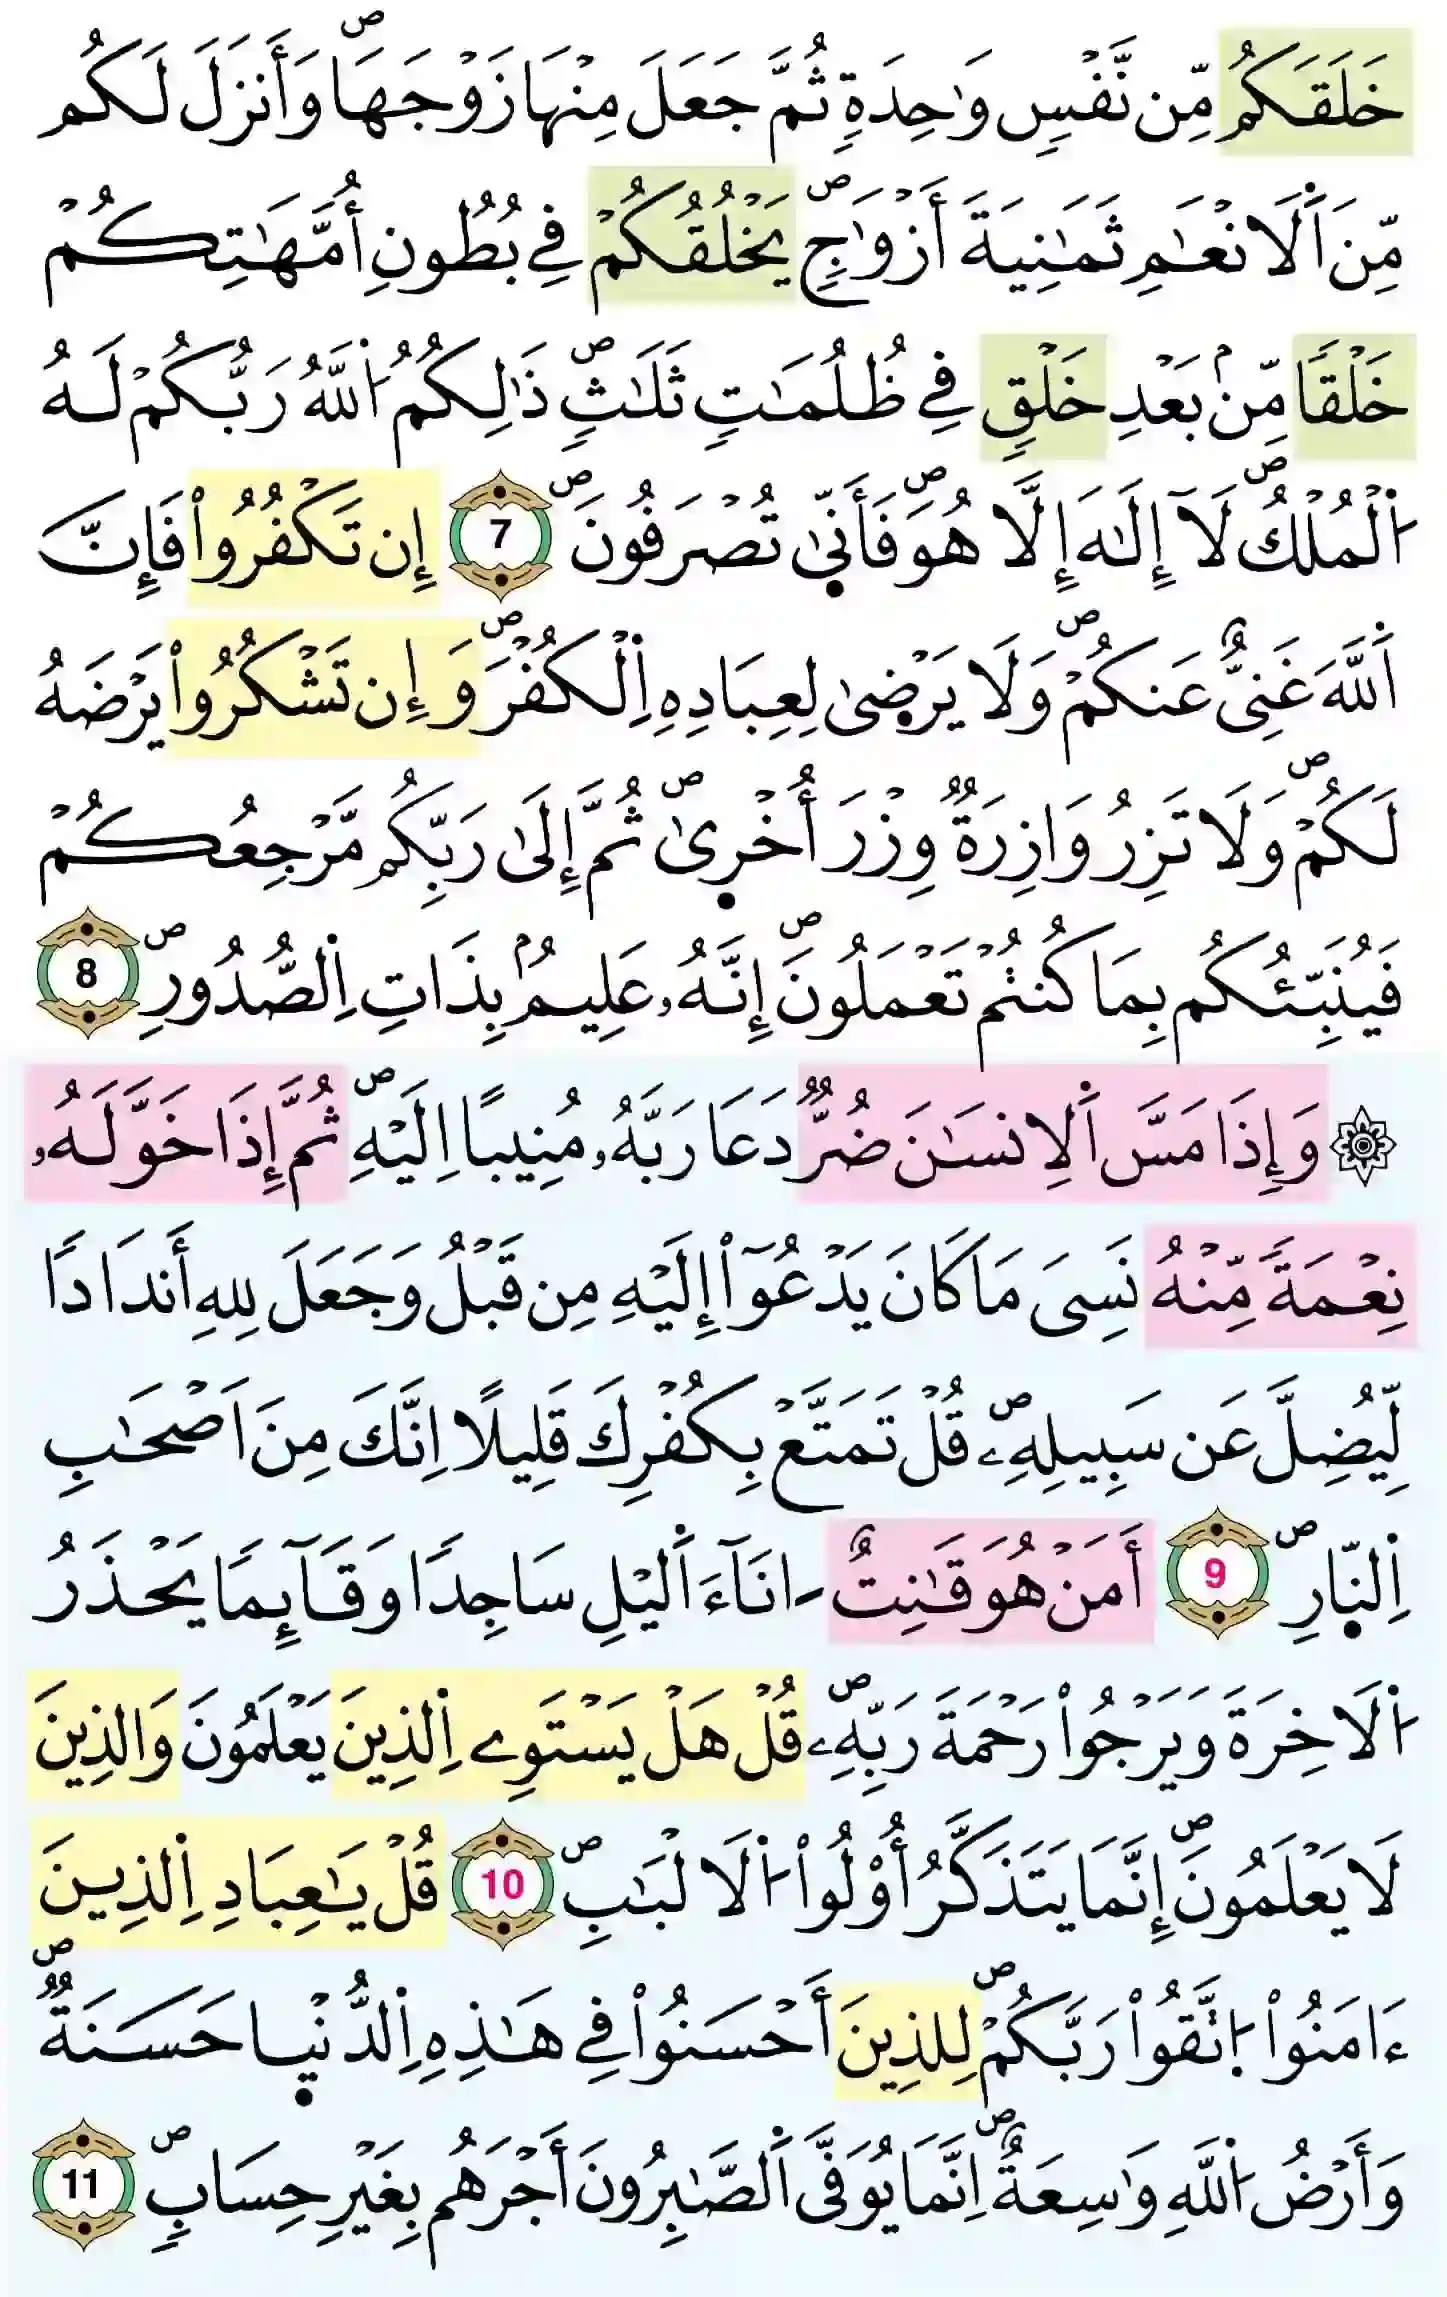 خَلَقَكُم مِّن نَّفْسٖ وَٰحِدَةٖ ثُمَّ جَعَلَ مِنْهَا زَوْجَهَاۖ وَأَنزَلَ لَكُم
مِّنَ اَ۬لَانْعَٰمِ ثَمَٰنِيَةَ أَزْوَٰجٖۖ يَخْلُقُكُمْ فِے بُطُونِ أُمَّهَٰتِكُمْ
خَلْقاٗ مِّنۢ بَعْدِ خَلْقٖ فِے ظُلُمَٰتٖ ثَلَٰثٖۖ ذَٰلِكُمُ اُ۬للَّهُ رَبُّكُمْ لَهُ
اُ۬لْمُلْكُۖ لَآ إِلَٰهَ إِلَّا هُوَۖ فَأَنّ۪يٰ تُصْرَفُونَۖ 7 إِن تَكْفُرُواْ فَإِنَّ
اَ۬للَّهَ غَنِيٌّ عَنكُمْۖ وَلَا يَرْض۪يٰ لِعِبَادِهِ اِ۬لْكُفْرَۖ وَإِن تَشْكُرُواْ يَرْضَهُ
لَكُمْۖ وَلَا تَزِرُ وَازِرَةٞ وِزْرَ أُخْر۪يٰۖ ثُمَّ إِلَيٰ رَبِّكُم مَّرْجِعُكُمْ
فَيُنَبِّئُكُم بِمَا كُنتُمْ تَعْمَلُونَۖ إِنَّهُۥ عَلِيمُۢ بِذَاتِ اِ۬لصُّدُورِۖ 8
۞ وَإِذَا مَسَّ اَ۬لِانسَٰنَ ضُرّٞ دَعَا رَبَّهُۥ مُنِيباً اِلَيْهِۖ ثُمَّ إِذَا خَوَّلَهُۥ
نِعْمَةٗ مِّنْهُ نَسِيَ مَا كَانَ يَدْعُوٓاْ إِلَيْهِ مِن قَبْلُ وَجَعَلَ لِلهِ أَندَاداٗ
لِّيُضِلَّ عَن سَبِيلِهِۦۖ قُلْ تَمَتَّعْ بِكُفْرِكَ قَلِيلاً اِنَّكَ مِنَ اَصْحَٰبِ
اِ۬لنّ۪ارِۖ 9 أَمَنْ هُوَ قَٰنِتٌ اٰنَآءَ اَ۬ليْلِ سَاجِداٗ وَقَآئِماٗ يَحْذَرُ
اُ۬لَاخِرَةَ وَيَرْجُواْ رَحْمَةَ رَبِّهِۦۖ قُلْ هَلْ يَسْتَوِے اِ۬لذِينَ يَعْلَمُونَ وَالذِينَ
لَا يَعْلَمُونَۖ إِنَّمَا يَتَذَكَّرُ أُوْلُواْ اُ۬لَالْبَٰبِۖ 10 قُلْ يَٰعِبَادِ اِ۬لذِينَ
ءَامَنُواْ اُ۪تَّقُواْ رَبَّكُمْۖ لِلذِينَ أَحْسَنُواْ فِے هَٰذِهِ اِ۬لدُّنْي۪ا حَسَنَةٞۖ
وَأَرْضُ اُ۬للَّهِ وَٰسِعَةٌۖ اِنَّمَا يُوَفَّي اَ۬لصَّٰبِرُونَ أَجْرَهُم بِغَيْرِ حِسَابٖۖ 11